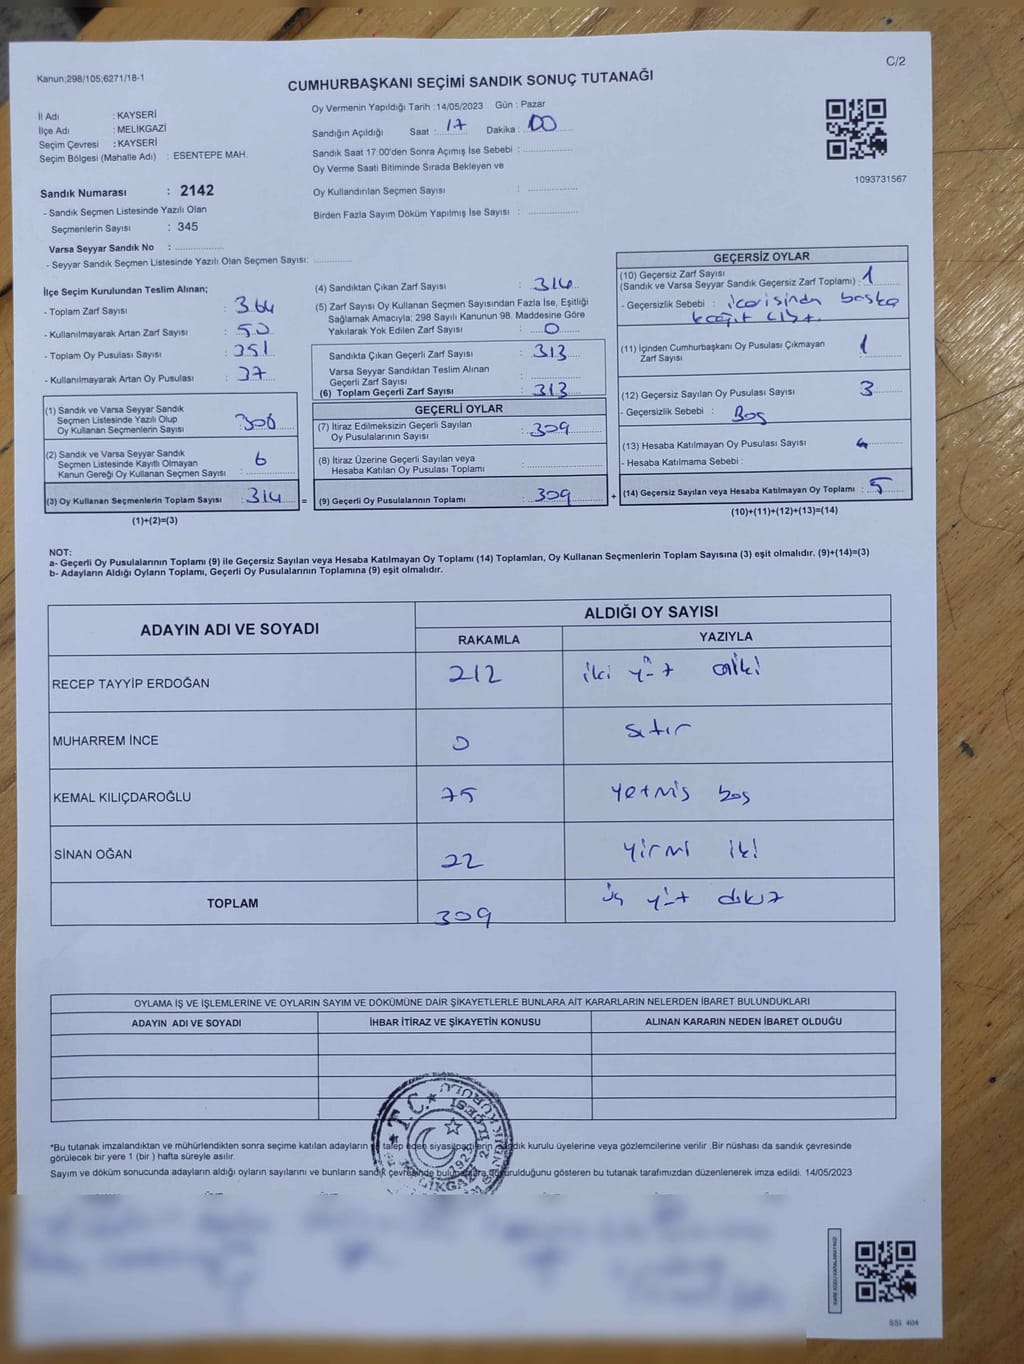 Kanun;298/105;6271/18-1
C/2
CUMHURBAŞKANI SEÇİMİ SANDIK SONUÇ TUTANAĞI
İl Adı : KAYSERİ
İlçe Adı : MELİKGAZİ
Seçim Çevresi : KAYSERİ
Seçim Bölgesi (Mahalle Adı) : ESENTEPE MAH.
Sandık Numarası : 2142
- Sandık Seçmen Listesinde Yazılı Olan
Seçmenlerin Sayısı : 345
Varsa Seyyar Sandık No :
- Seyyar Sandık Seçmen Listesinde Yazılı Olan Seçmen Sayısı:
Oy Vermenin Yapıldığı Tarih :14/05/2023 Gün : Pazar
Sandığın Açıldığı Saat : 17 Dakika : 00
Sandık Saat 17:00'den Sonra Açımış İse Sebebi :
Oy Verme Saati Bitiminde Sırada Bekleyen ve
Oy Kullandırılan Seçmen Sayısı :
Birden Fazla Sayım Döküm Yapılmış İse Sayısı :
1093731567
İlçe Seçim Kurulundan Teslim Alınan;
- Toplam Zarf Sayısı : 364
- Kullanılmayarak Artan Zarf Sayısı : 50
- Toplam Oy Pusulası Sayısı : 351
- Kullanılmayarak Artan Oy Pusulası : 37
(1) Sandık ve Varsa Seyyar Sandık
Seçmen Listesinde Yazılı Olup
Oy Kullanan Seçmenlerin Sayısı : 308
(2) Sandık ve Varsa Seyyar Sandık
Seçmen Listesinde Kayıtlı Olmayan
Kanun Gereği Oy Kullanan Seçmen Sayısı : 6
(3) Oy Kullanan Seçmenlerin Toplam Sayısı : 314 =
(1)+(2)=(3)
(4) Sandıktan Çıkan Zarf Sayısı : 314
(5) Zarf Sayısı Oy Kullanan Seçmen Sayısından Fazla İse, Eşitliği
Sağlamak Amacıyla; 298 Sayılı Kanunun 98. Maddesine Göre
Yakılarak Yok Edilen Zarf Sayısı : 0
Sandıkta Çıkan Geçerli Zarf Sayısı : 313
Varsa Seyyar Sandıktan Teslim Alınan
Geçerli Zarf Sayısı :
(6) Toplam Geçerli Zarf Sayısı : 313
GEÇERLİ OYLAR
(7) İtiraz Edilmeksizin Geçerli Sayılan
Oy Pusulalarının Sayısı : 309
(8) İtiraz Üzerine Geçerli Sayılan veya
Hesaba Katılan Oy Pusulası Toplamı :
(9) Geçerli Oy Pusulalarının Toplamı : 309 +
GEÇERSİZ OYLAR
(10) Geçersiz Zarf Sayısı
(Sandık ve Varsa Seyyar Sandık Geçersiz Zarf Toplamı) : 1
- Geçersizlik Sebebi : içerisinden başka
kağıt çıktı.
(11) İçinden Cumhurbaşkanı Oy Pusulası Çıkmayan
Zarf Sayısı : 1
(12) Geçersiz Sayılan Oy Pusulası Sayısı : 3
- Geçersizlik Sebebi : Boş
(13) Hesaba Katılmayan Oy Pusulası Sayısı :
- Hesaba Katılmama Sebebi :
(14) Geçersiz Sayılan veya Hesaba Katılmayan Oy Toplamı : 5
(10)+(11)+(12)+(13)=(14)
NOT:
a- Geçerli Oy Pusulalarının Toplamı (9) ile Geçersiz Sayılan veya Hesaba Katılmayan Oy Toplamı (14) Toplamları, Oy Kullanan Seçmenlerin Toplam Sayısına (3) eşit olmalıdır. (9)+(14)=(3)
b- Adayların Aldığı Oyların Toplamı, Geçerli Oy Pusulalarının Toplamına (9) eşit olmalıdır.
ADAYIN ADI VE SOYADI ALDIĞI OY SAYISI
RAKAMLA YAZIYLA
RECEP TAYYİP ERDOĞAN 212 iki yüz oniki
MUHARREM İNCE 0 sıfır
KEMAL KILIÇDAROĞLU 75 yetmiş beş
SİNAN OĞAN 22 yirmi iki
TOPLAM 309 üç yüz dokuz
OYLAMA İŞ VE İŞLEMLERİNE VE OYLARIN SAYIM VE DÖKÜMÜNE DAİR ŞİKAYETLERLE BUNLARA AİT KARARLARIN NELERDEN İBARET BULUNDUKLARI
ADAYIN ADI VE SOYADI İHBAR İTİRAZ VE ŞİKAYETİN KONUSU ALINAN KARARIN NEDEN İBARET OLDUĞU
*Bu tutanak imzalandıktan ve mühürlendikten sonra seçime katılan adayların talep eden siyasi partilerin sandık kurulu üyelerine veya gözlemcilerine verilir .Bir nüshası da sandık çevresinde
görülecek bir yere 1 (bir ) hafta süreyle asılır.
Sayım ve döküm sonucunda adayların aldığı oyların sayılarını ve bunların sandık çevresinde duyurulduğunu gösteren bu tutanak tarafımızdan düzenlenerek imza edildi. 14/05/2023
T.C.
SSI 404